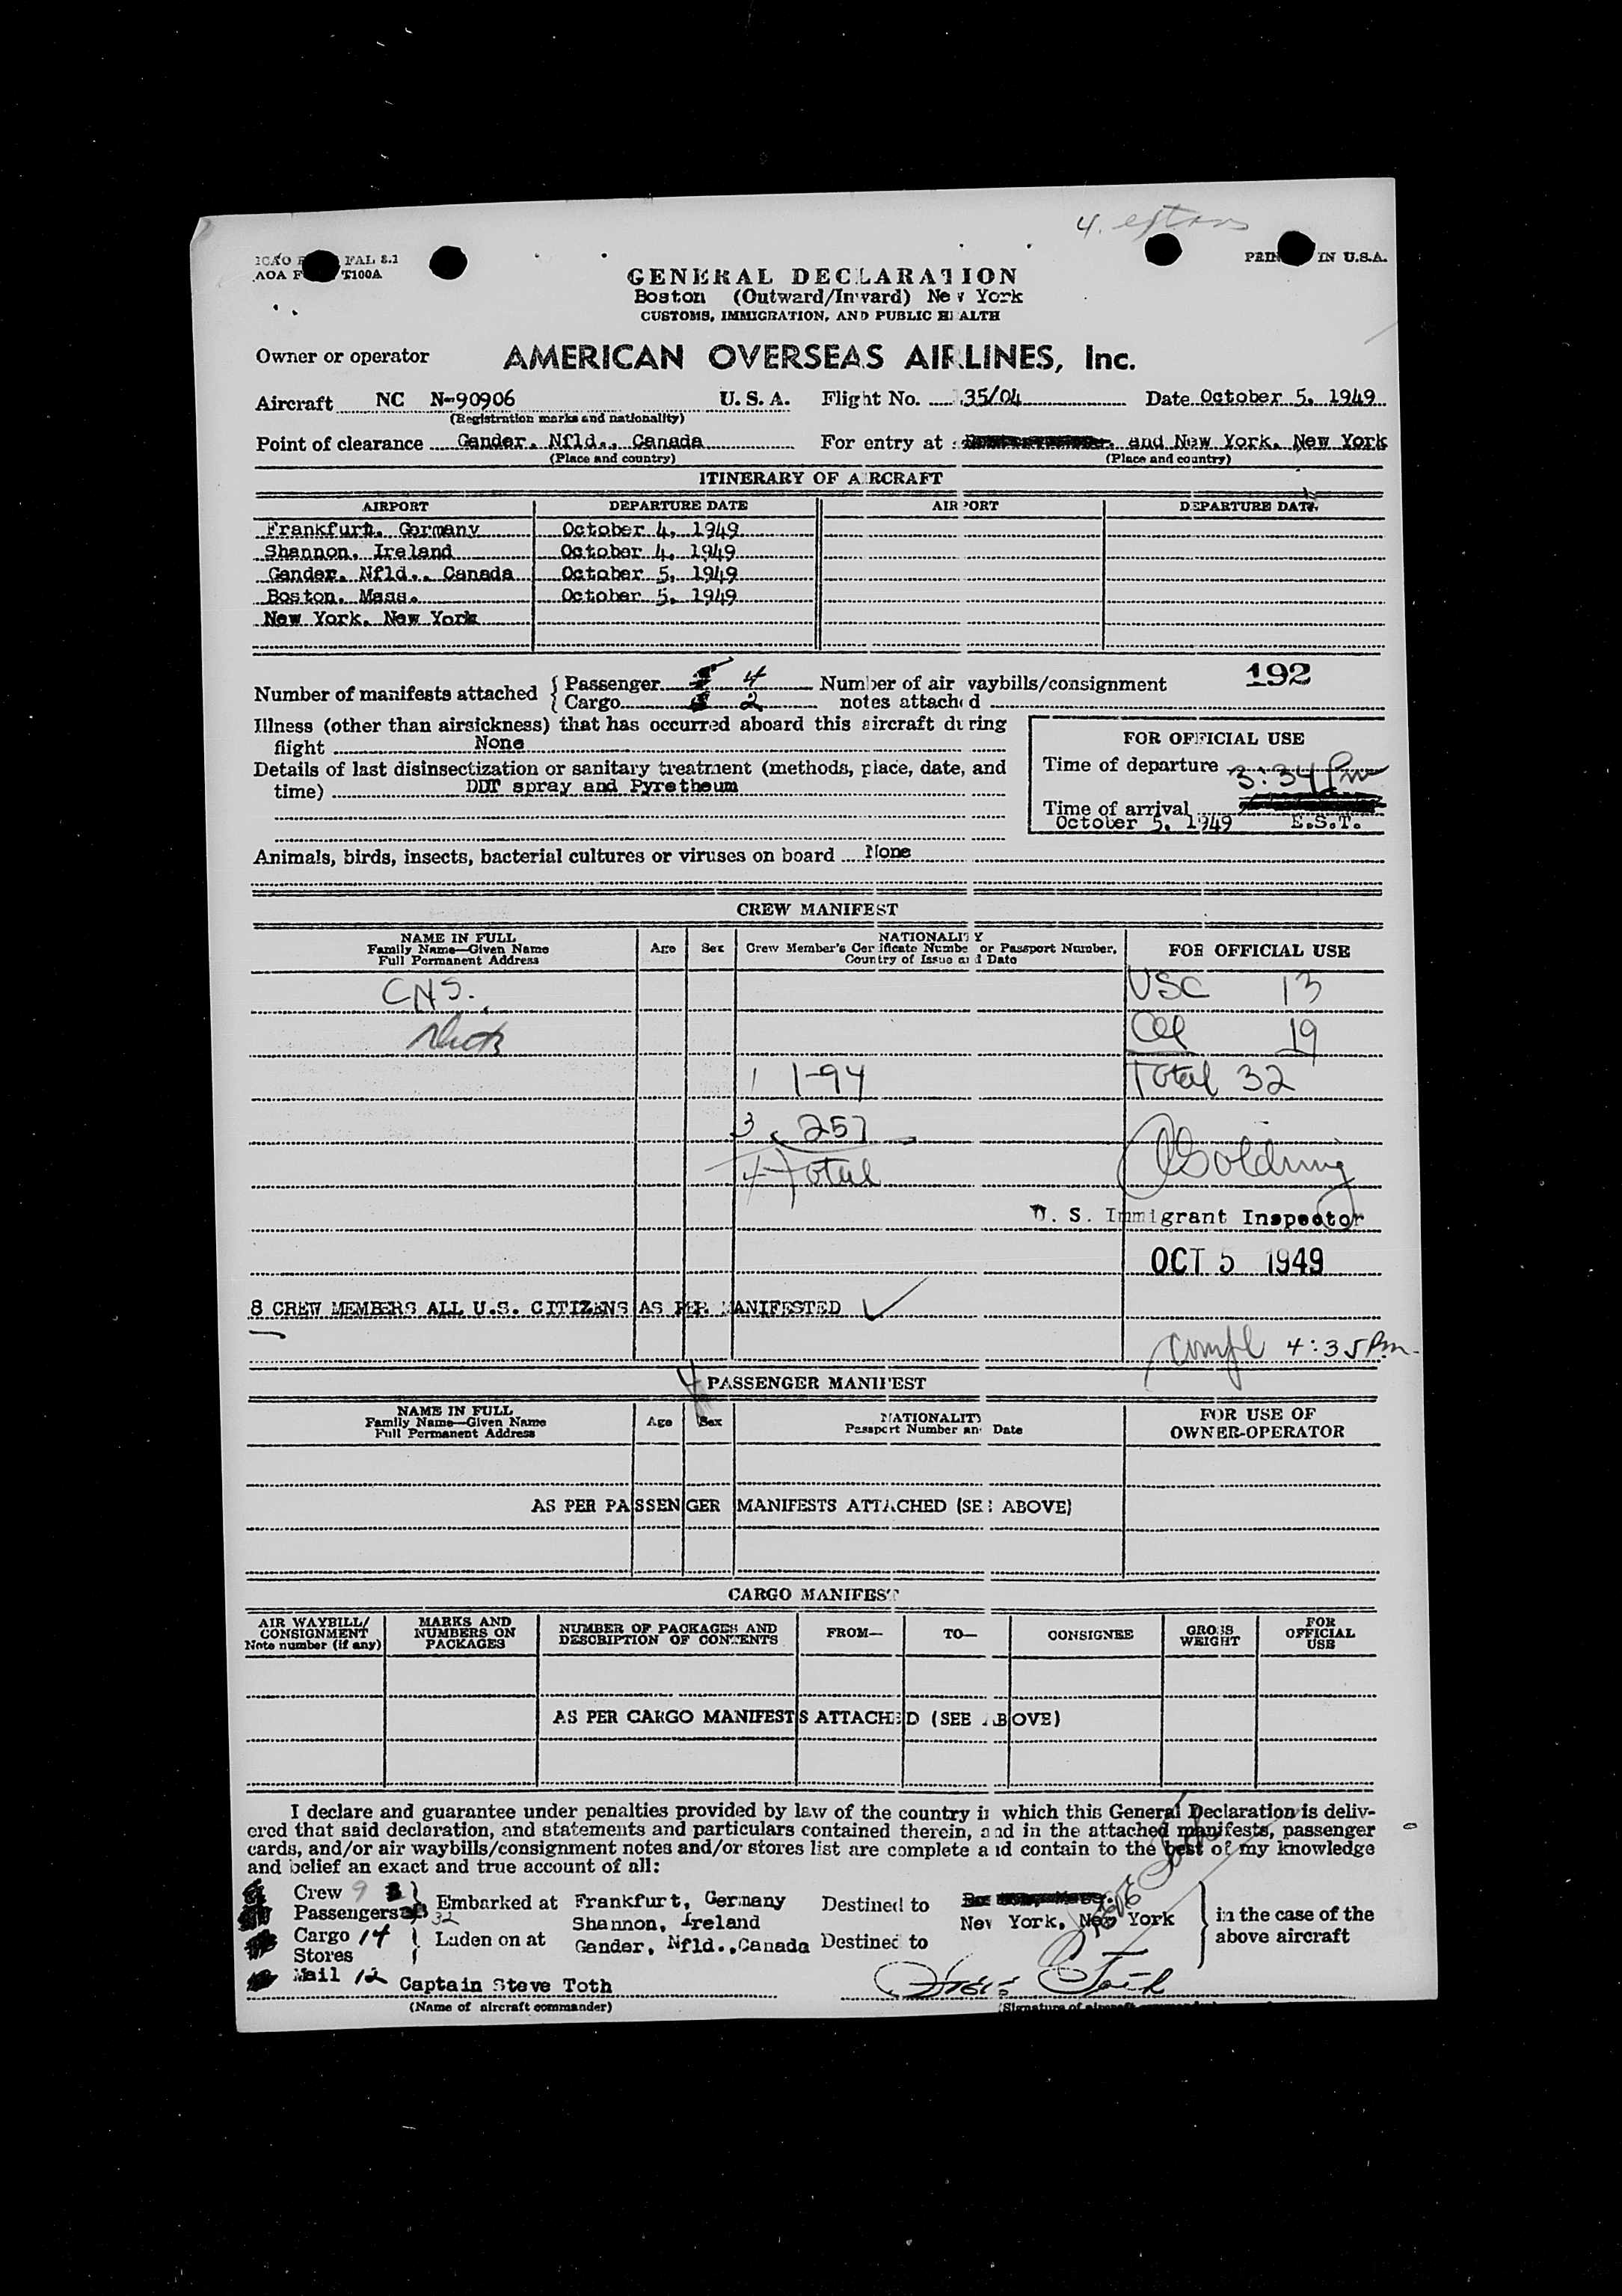 4.
ICAO FAL 8.1
AOA F T100A
PRIN IN U.S.A.
GENERAL DECLARATION
Boston (Outward/Inward) New York
CUSTOMS, IMMIGRATION, AND PUBLIC HEALTH
Owner or operator AMERICAN OVERSEAS AIRLINES, Inc.
Aircraft NC N-90906 U. S. A. Flight No. 35/04 Date October 5, 1949
(Registration marks and nationality)
Point of clearance Gander, Nfld., Canada For entry at and New York, New York
(Place and country) (Place and country)
ITINERARY OF AIRCRAFT
AIRPORT DEPARTURE DATE AIRPORT DEPARTURE DATE
Frankfurt, Germany October 4, 1949
Shannon, Ireland October 4, 1949
Gander, Nfld., Canada October 5, 1949
Boston, Mass. October 5, 1949
New York, New York
192
Number of manifests attached { Passenger 4 Number of air waybills/consignment
Cargo 2 notes attached
Illness (other than airsickness) that has occurred aboard this aircraft during
flight None
FOR OFFICIAL USE
Details of last disinsectization or sanitary treatment (methods, place, date, and
time) DDT spray and Pyretheum
Time of departure 3:34 Pm
Time of arrival
October 5, 1949 E.S.T.
Animals, birds, insects, bacterial cultures or viruses on board None
CREW MANIFEST
NAME IN FULL
Family Name—Given Name
Full Permanent Address
Age Sex
NATIONALITY
Crew Member's Certificate Number or Passport Number,
Country of Issue and Date
FOR OFFICIAL USE
CNS. USC 13
19
1 1-94 Total 32
3 257
4 Total Goldring
U. S. Immigrant Inspector
OCT 5 1949
8 CREW MEMBERS ALL U.S. CITIZENS AS PER MANIFESTED
Compl 4:35 Pm.
4
PASSENGER MANIFEST
NAME IN FULL
Family Name—Given Name
Full Permanent Address
Age Sex
NATIONALITY
Passport Number and Date
FOR USE OF
OWNER-OPERATOR
AS PER PASSENGER MANIFESTS ATTACHED (SEE ABOVE)
CARGO MANIFEST
AIR WAYBILL/
CONSIGNMENT
Note number (if any)
MARKS AND
NUMBERS ON
PACKAGES
NUMBER OF PACKAGES AND
DESCRIPTION OF CONTENTS
FROM— TO— CONSIGNEE
GROSS
WEIGHT
FOR
OFFICIAL
USE
AS PER CARGO MANIFESTS ATTACHED (SEE ABOVE)
I declare and guarantee under penalties provided by law of the country in which this General Declaration is deliv-
ered that said declaration, and statements and particulars contained therein, and in the attached manifests, passenger
cards, and/or air waybills/consignment notes and/or stores list are complete and contain to the best of my knowledge
and belief an exact and true account of all:
Crew 9
Passengers 32
Embarked at Frankfurt, Germany Destined to
Shannon, Ireland New York, New York
Cargo 14
Stores
Laden on at Gander, Nfld.,Canada Destined to
in the case of the
above aircraft
Mail 12
Captain Steve Toth
(Name of aircraft commander)
Steve Toth
(Signature of aircraft commander)